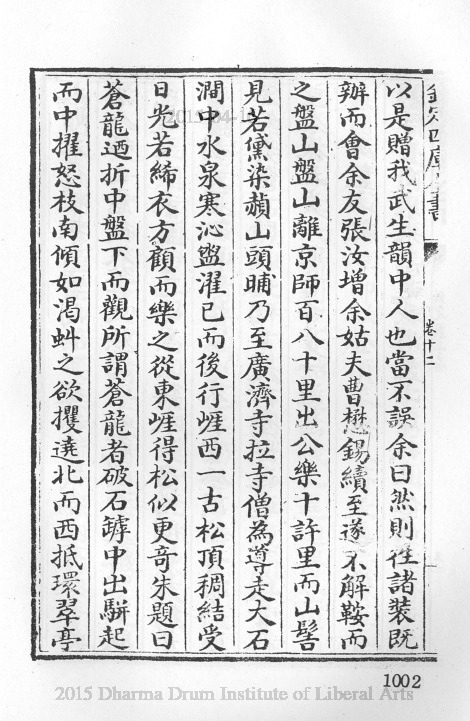 欽定四庫全書
卷十二
以是贈我武生韻中人也當不誤余曰然則往諸裝既
辦而會余友張汝增余姑夫曹懋錫續至遂不解鞍而
之盤山盤山離京師百八十里出公樂十許里而山髻
見若黛染頳山頭晡乃至廣濟寺拉寺僧為導走大石
澗中水泉寒沁盥濯已而後行崕西一古松頂稠結受
日光若絺衣方顧而樂之從東崕得松似更奇朱題曰
蒼龍迺折中盤下而觀所謂蒼龍者破石罅中出駢起
而中擢怒枝南傾如渴蚪之欲攫遶北而西抵環翠亭
1002
2015 Dharma Drum Institute of Liberal Arts